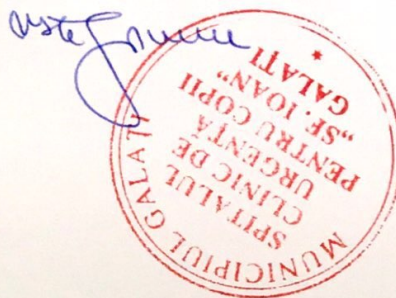 MUNICIPIUL GALAȚI
SPITALUL
CLINIC DE
URGENȚĂ
PENTRU COPII
„SF. IOAN”
GALAȚI